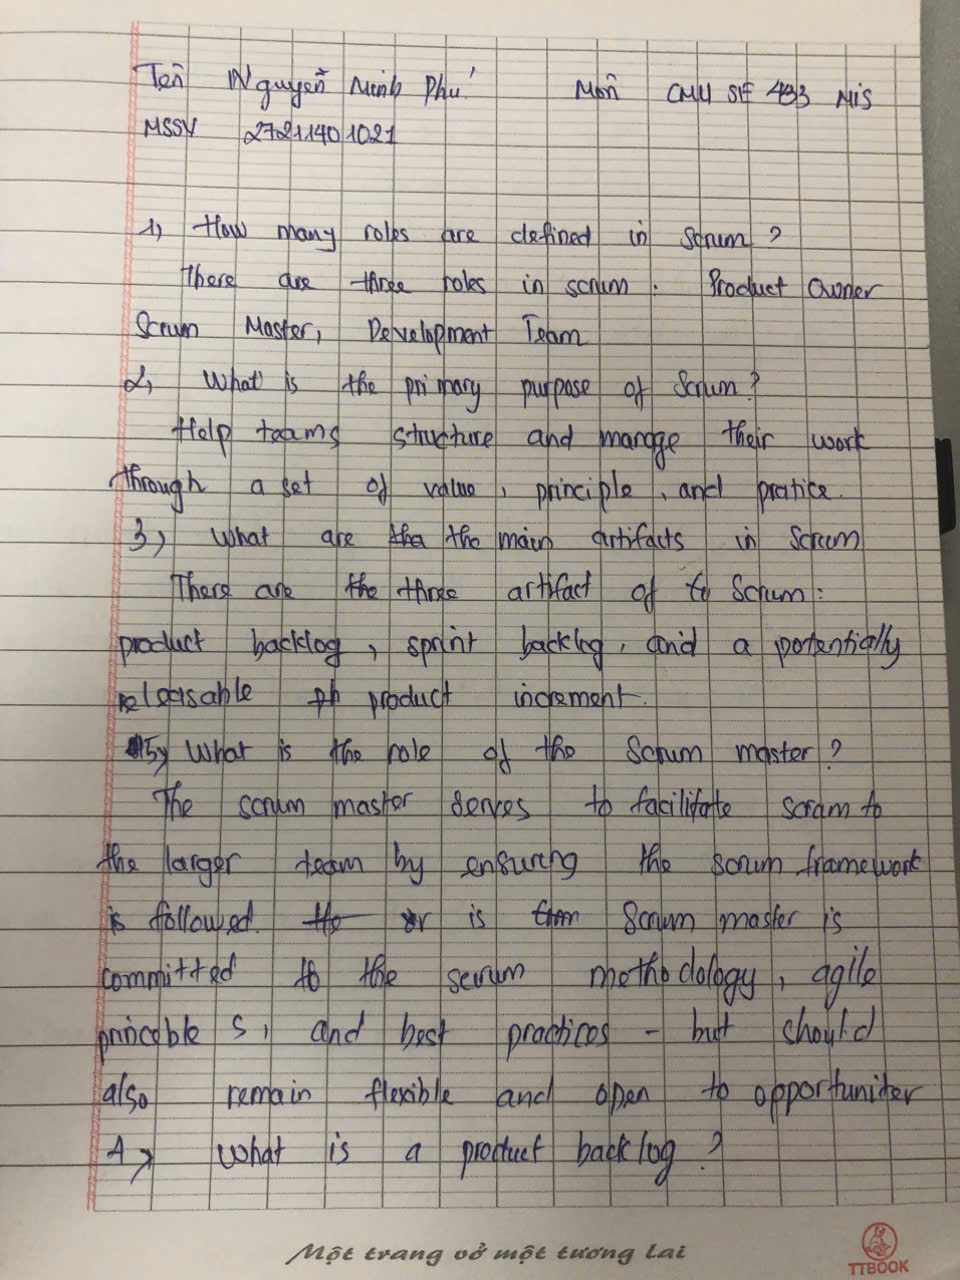 Tên Nguyễn Minh Phú Môn CMU SE 433 MIS
MSSV 27211401021
1, How many roles are defined in scrum ?
There are three roles in scrum : Product Owner
Scrum Master, Development Team
2, What is the primary purpose of Scrum ?
Help teams structure and manage their work
through a set of value, principle, and pratice.
3, What are the the main artifacts in Scrum
There are the three artifact of to Scrum :
product backlog, sprint backlog, and a potentially
releasable product increment.
5, What is the role of the Scrum master ?
The scrum master serves to facilitate scram to
the larger team by ensuring the scrum framework
is followed. is Scrum master is
committed to the scrum methodology, agile
princeble s, and best practices - but should
also remain flexible and open to opportuniter
4, What is a product backlog ?
Một trang vở một tương lai
TTBOOK